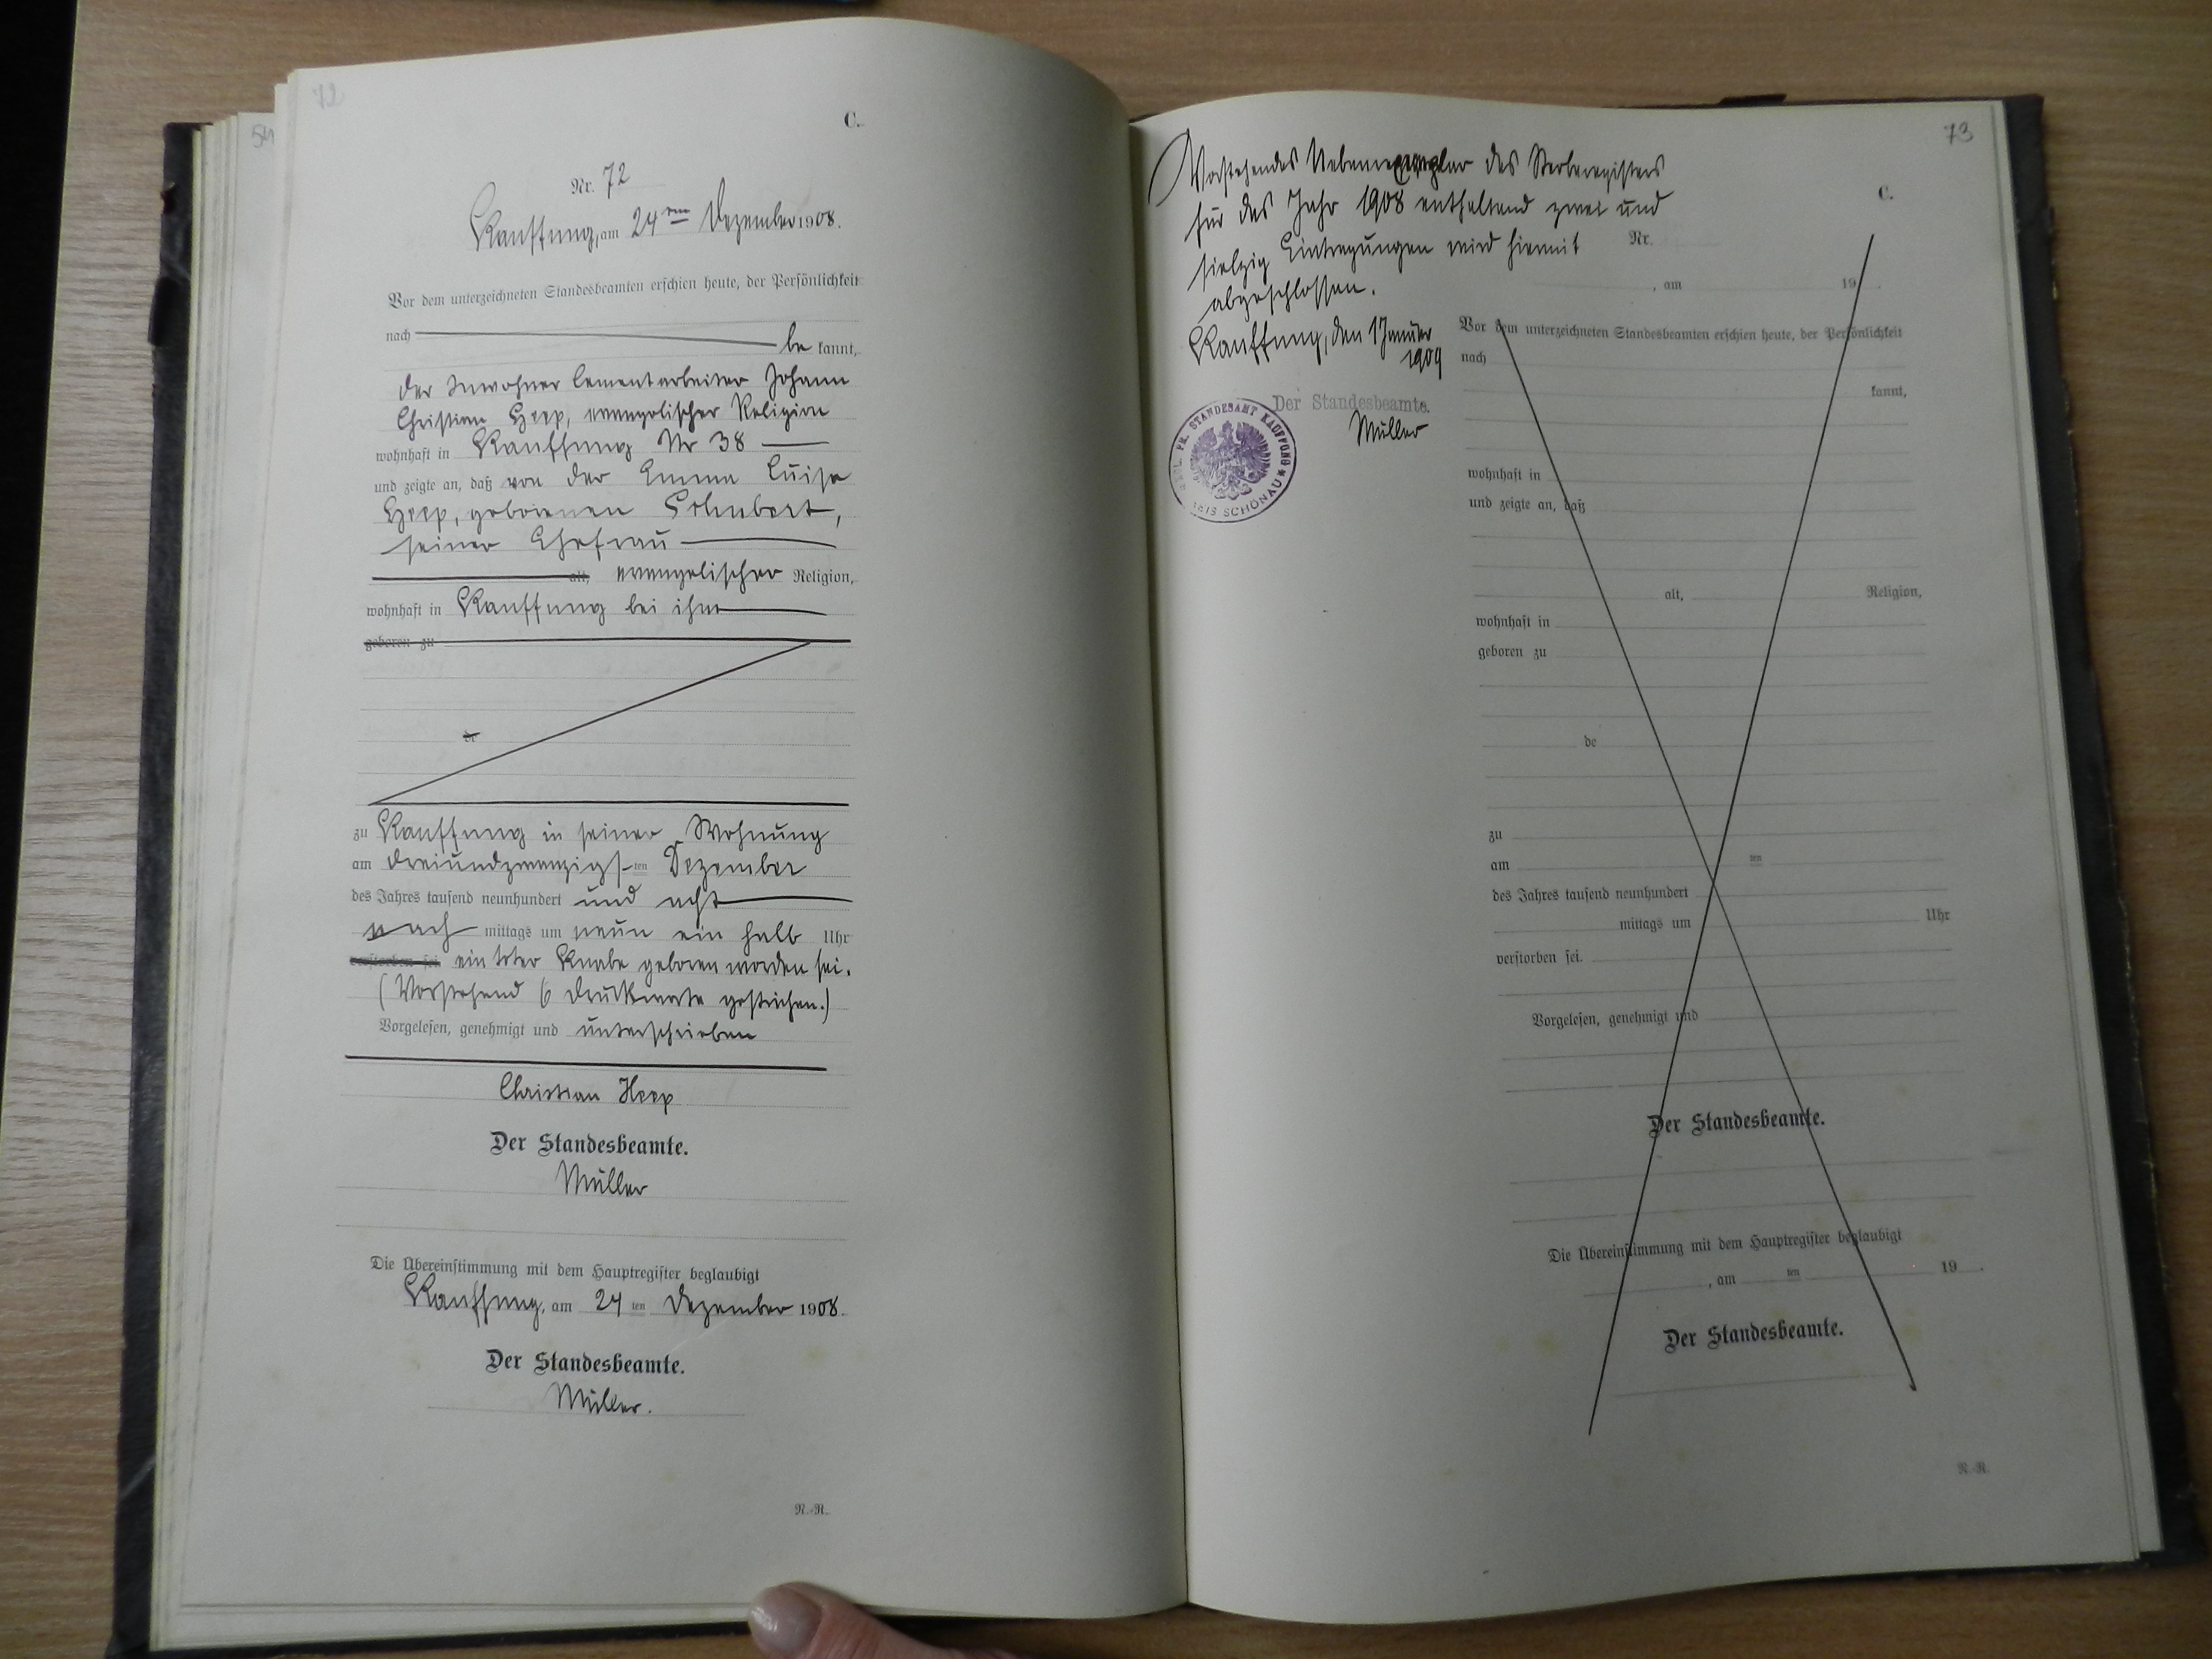 72
54
C.
Nr. 72
Kauffung, am 24ten Dezember 1908.
Vor dem unterzeichneten Standesbeamten erschien heute, der Persönlichkeit
nach be kannt,
der Inwohner Cementarbeiter Johann
Christian Heep, evangelischer Religion
wohnhaft in Kauffung Nr 38
und zeigte an, daß von der Emma Luise
Heep, geborenen Schubert,
seiner Ehefrau
alt, evangelischer Religion,
wohnhaft in Kauffung bei ihm
geboren zu
de
zu Kauffung in seiner Wohnung
am dreiundzwanzigsten Dezember
des Jahres tausend neunhundert und acht
nach mittags um neun ein halb Uhr
verstorben sei ein toter Knabe geboren worden sei.
(Vorstehend 6 Druckworte gestrichen.)
Vorgelesen, genehmigt und unterschrieben
Christian Heep
Der Standesbeamte.
Müller
Die Übereinstimmung mit dem Hauptregister beglaubigt
Kauffung, am 24 ten Dezember 1908.
Der Standesbeamte.
Müller.
N.-R.
73
Vorstehendes Nebenexemplar des Sterberegisters
für das Jahr 1908 enthaltend zwei und
siebzig Eintragungen wird hiermit
abgeschlossen.
Kauffung, den 1 Januar
1909
Der Standesbeamte.
Müller
PR. STANDESAMT KAUFFUNG * KREIS SCHÖNAU *
C.
Nr.
, am 19 .
Vor dem unterzeichneten Standesbeamten erschien heute, der Persönlichkeit
nach
kannt,
wohnhaft in
und zeigte an, daß
alt, Religion,
wohnhaft in
geboren zu
de
zu
am ten
des Jahres tausend neunhundert
mittags um Uhr
verstorben sei.
Vorgelesen, genehmigt und
Der Standesbeamte.
Die Übereinstimmung mit dem Hauptregister beglaubigt
, am ten 19 .
Der Standesbeamte.
N.-R.